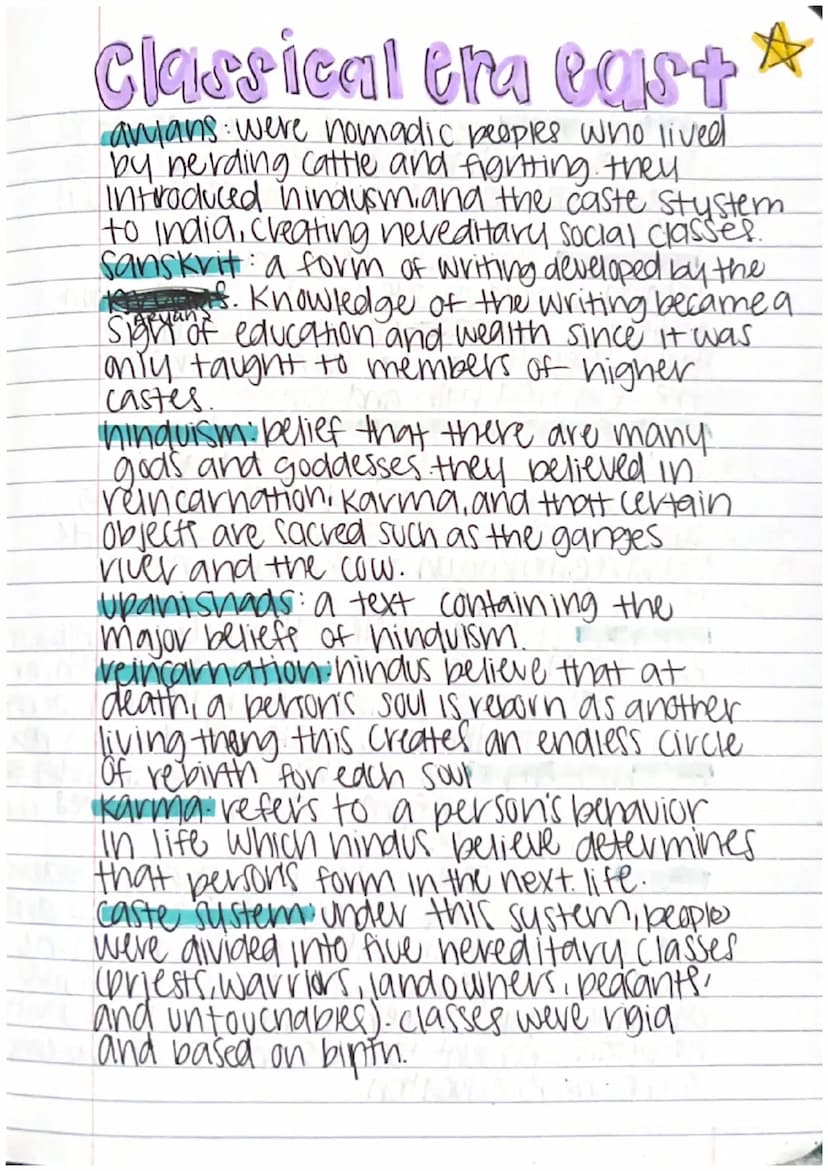 Classical era east
aryans: were nomadic peoples who lived
by herding cattle and fighting. they
introduced hinduism, and the caste stystem
to India, creating hereditary social classes.
Sanskrit: a form of writing developed by the
Aryans. Knowledge of the writing became a
sign of education and wealth since it was
only taught to members of higher
castes.
hinduism: belief that there are many
gods and goddesses. they believed in
reincarnation, karma, and that certain
objects are sacred such as the ganges
river and the cow.
upanishads: a text containing the
major beliefs of hinduism.
reincarnation: hindus believe that at
death, a person's soul is reborn as another
living thing. this creates an endless circle
of rebirth for each soul
karma: refers to a person's behavior
in life which hindus believe determines
that person's form in the next life.
caste system: under this system, people
were divided into five hereditary classes
(priests, warriors, landowners, peasants,
and untouchables). classes were rigid
and based on birth.